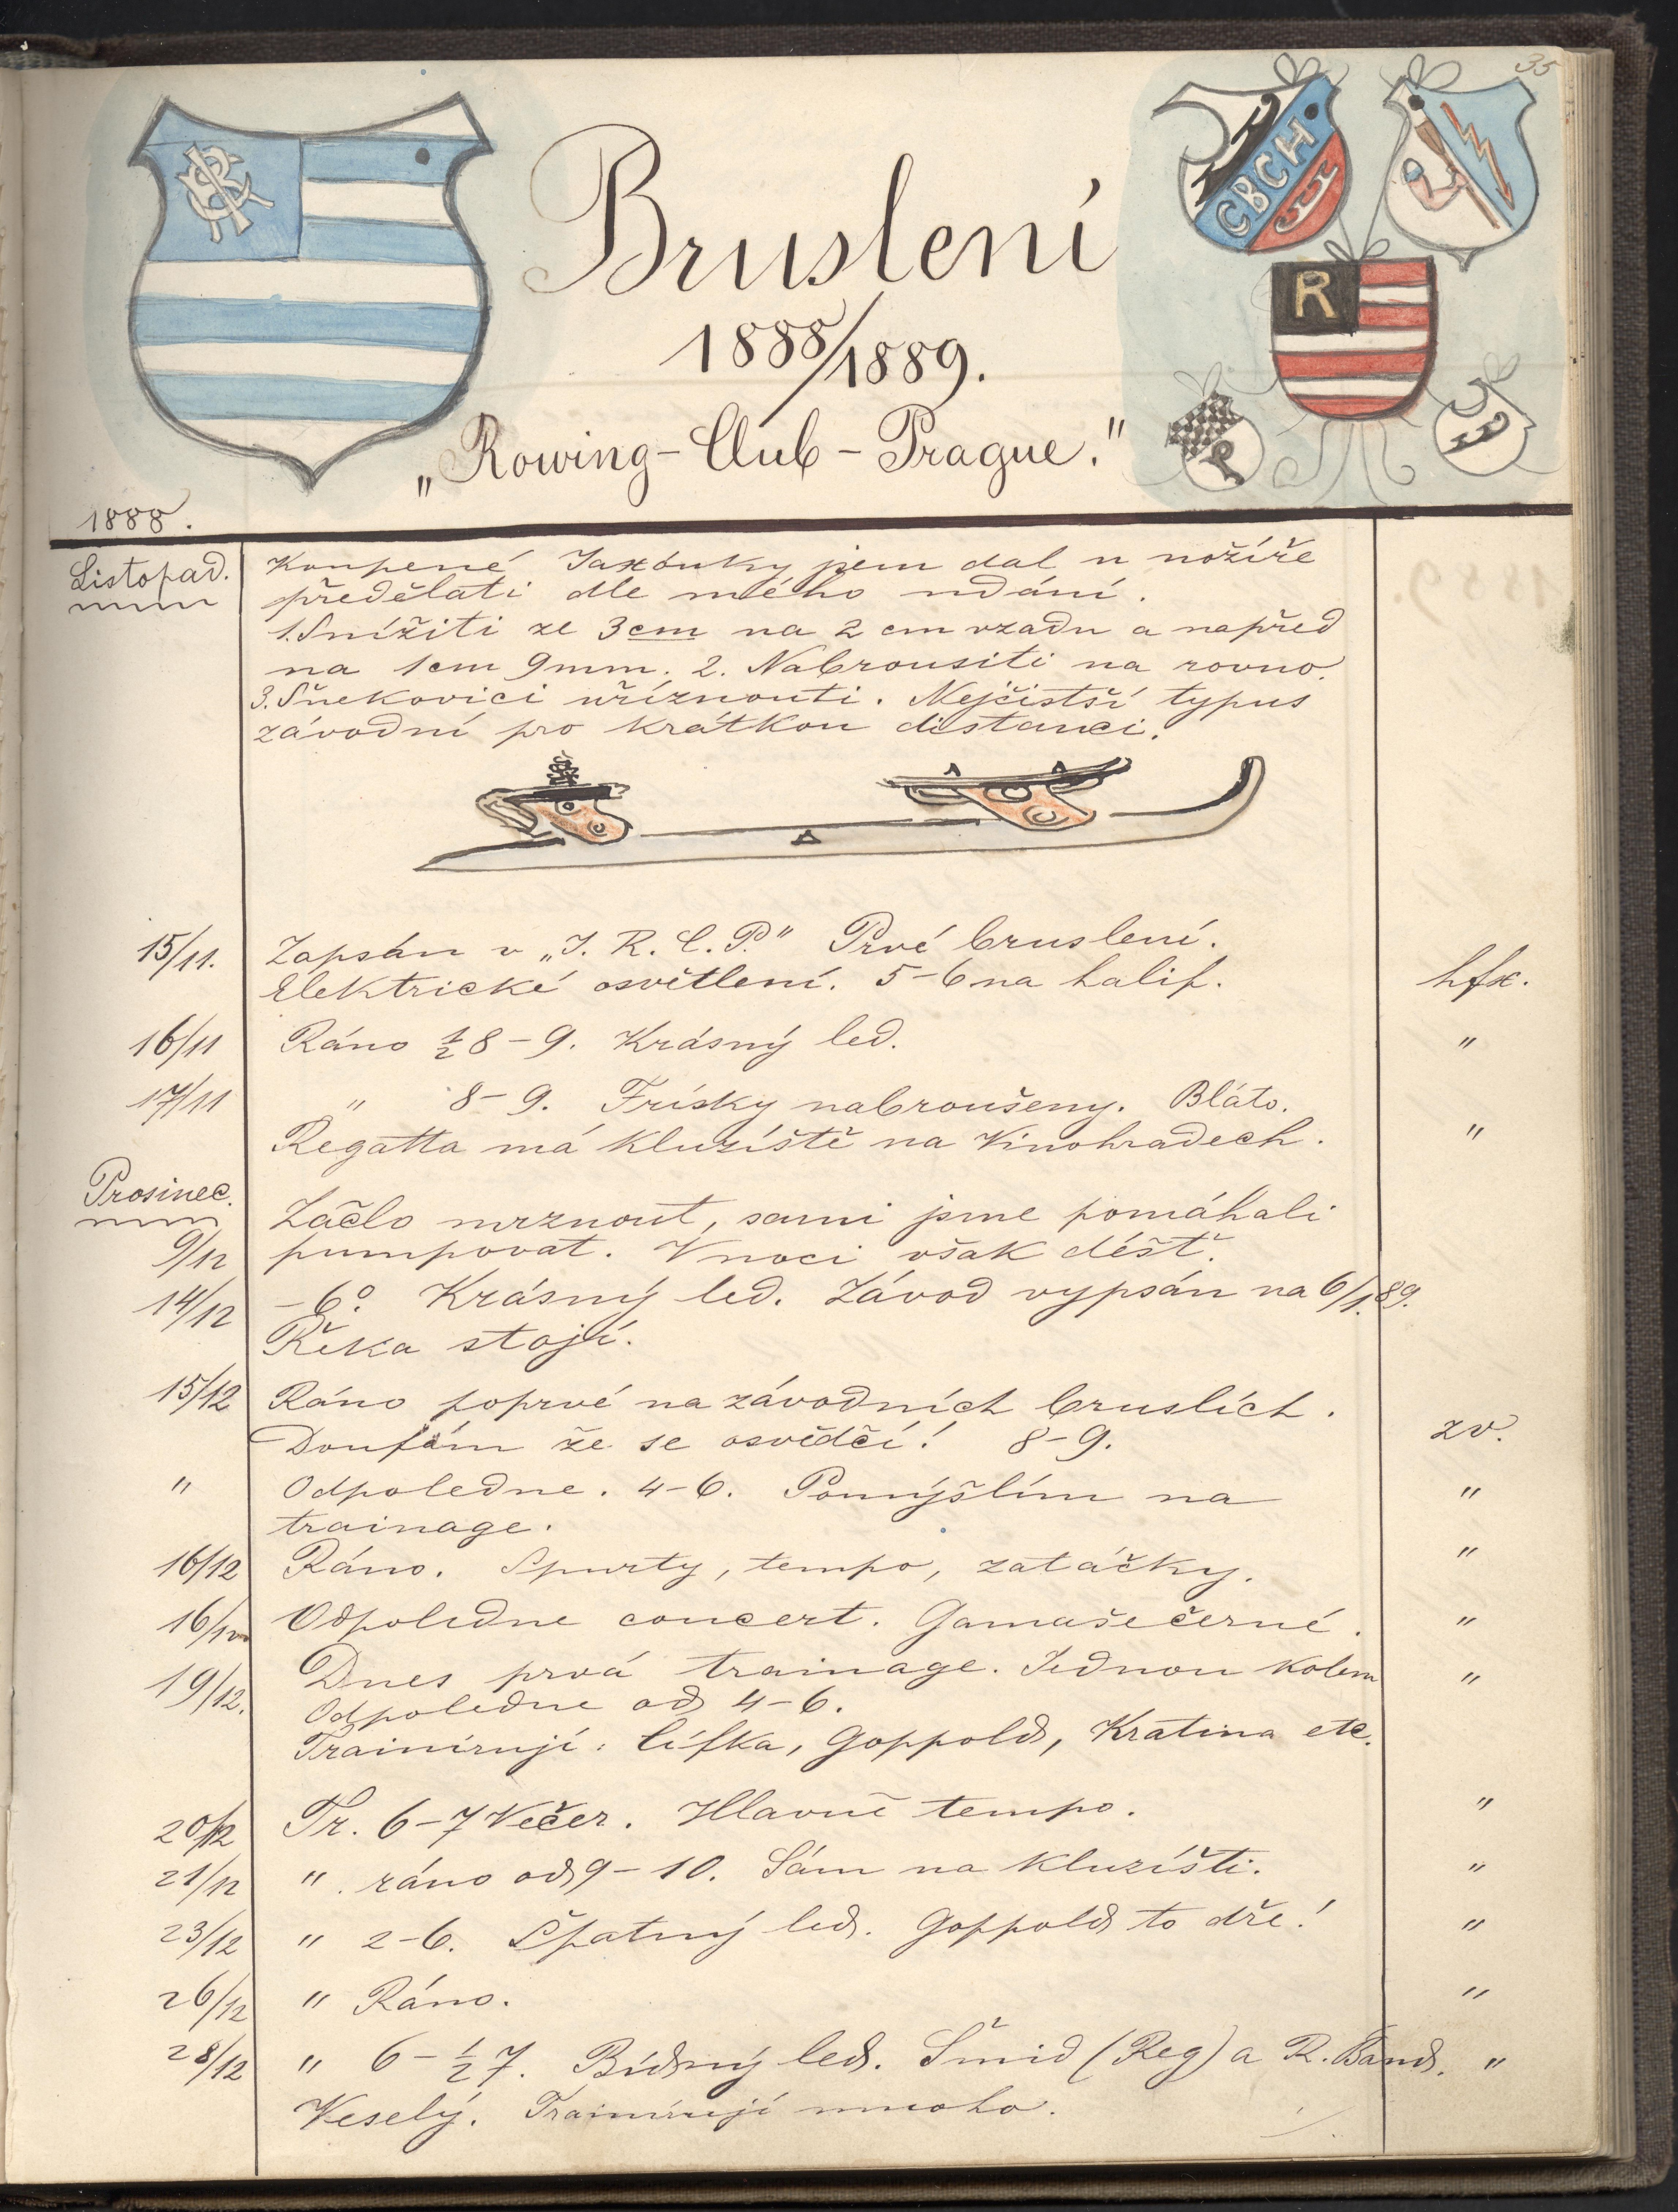 35
CBCH
R
Bruslení
1888/1889.
„Rowing-Club-Prague."
1888.
Listopad. Koupené Jaxonky jsem dal u nožíře
předělati dle mého udání.
1. Snížiti ze 3cm na 2 cm vzadu a napřed
na 1cm 9mm. 2. Nabrousiti na rovno.
3. Šnekovici uříznouti. Nejčistší typus
závodní pro krátkou distanci.
15/11. Zapsán v „I. R. C. P." Prvé bruslení.
Elektrické osvětlení. 5-6 na halif. hfx.
16/11 Ráno ½8-9. Krásný led. "
17/11 " 8-9. Frísky nabroušeny. Bláto.
Regatta má kluziště na Vinohradech. "
Prosinec.
9/12 Začlo mrznout, sami jsme pomáhali
pumpovat. V noci však déšť.
14/12 -6° Krásný led. Závod vypsán na 6/1.89.
Řeka stojí.
15/12 Ráno poprvé na závodních bruslích.
Doufám že se osvědčí! 8-9. zv.
" Odpoledne. 4-6. Pomýšlím na "
trainage.
16/12 Ráno. Spurty, tempo, zatáčky. "
16/12 Odpoledne concert. Gamaše černé. "
19/12. Dnes prvá trainage. Jednou kolem "
Odpoledne od 4-6.
Trainírují: Cífka, Goppold, Kratina etc.
20/12 Tr. 6-7 Večer. Hlavně tempo. "
21/12 " ráno od 9-10. Sám na kluzišti. "
23/12 " 2-6. Špatný led. Goppold to dře! "
26/12 " Ráno. "
28/12 " 6-½7. Bídný led. Šmid (Reg) a R. Band. "
Veselý. Trainírují mnoho.